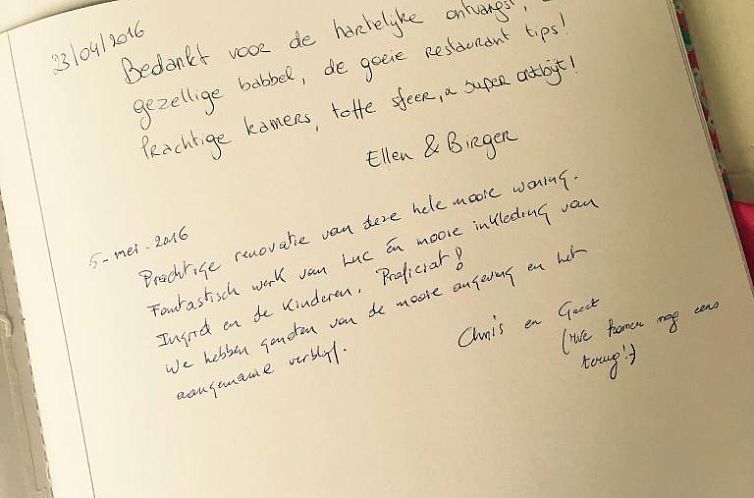 23/04/2016
Bedankt voor de hartelijke ontvangst,
gezellige babbel, de goeie restaurant tips!
Prachtige kamers, toffe sfeer, a super ontbijt!
Ellen & Birger
5-mei-2016
Prachtige renovatie van deze hele mooie woning.
Fantastisch werk van Luc én mooie inkleding van
Ingrid en de kinderen. Proficiat!
We hebben genoten van de mooie omgeving en het
aangename verblijf.
Chris en Geert
(We komen nog eens
terug!:)